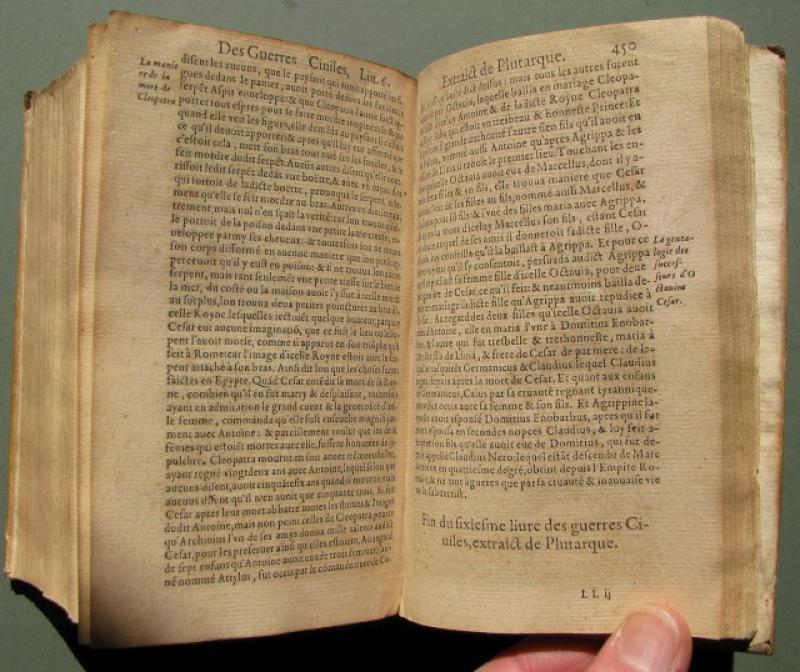 Des Guerres Ciuiles, Liu. 6.
La manie
re de la
mort de
Cleopatra
disent les aucuns, que le paysant qui auoit apporté les fi-
gues dedans le panier, auoit porté dedans les
serpẽt Aspis enueloppé: & que Cleopatra l'auoit fait ap-
porter tout espres pour se faire mordre inopinémẽt: & que
quand elle veit les figues, elle demãda au paysant si c'estoit
ce qu'il deuoit apporter: & apres qu'il luy eut affermé que
c'estoit cela, meit son bras tout nud sur les fueilles, & se
feit mordre dudit serpẽt. Aucũs autres disent qu'elle nou-
rissoit ledit serpẽt dedãs vne boëtte, & auec vn
qui sortoit de ladicte boëtte, prouoqua le serpent,
mens qu'elle se feit mordre au bras. Autres en diẽt au-
trement, mais nul n'en sçait la verité: car
le portoit de la poison dedans vne petite
ueloppee parmy ses cheueux: & toutesfois
son corps difformé en aucune maniere que
perceuoit qu'il y eust eu poison: & si ne trouua lon aucun
serpent, mais tant seulemẽt vne petite trasse sur le bord de
la mer, du costé ou la maison auoit l'yssue à icelle
au surplus, lon trouua deux petites poinctures au bras di-
celle Royne lesquelles iectoiẽt quelque humeur, parquoy
Cesar eut aucune imaginatiõ, que ce fust le lieu ou le ser-
pent l'auoit morse, comme il apparut en son triũphe qu'il
feit à Rome: car l'image d'icelle Royne estoit auec le ser-
pent attaché à son bras. Ainsi dit lon que les choses furent
faictes en Egypte. Quãd Cesar entẽdit la mort de la Roy-
ne, combien qu'il en fut marry & desplaisant, toutesfois
ayant en admiration le grand cueur & la generosité d'icel-
le femme, commanda qu'elle fust enseuelie magnifique-
ment auec Antoine: & pareillement voulut que les deux
fẽmes qui estoiẽt mortes auec elle, fussent honorees de se-
pulchre. Cleopatra mourut en son annee trẽteneufiesme,
ayant regné vingtdeux ans auec Antoine, lequel selon que
aucuns disent, auoit cinquãtesix ans quand il mourut: &
aucuns disent qu'il n'en auoit que cinquante trois. Si feit
Cesar apres leur mort abbatre toutes les statues & Images
dudit Antoine, mais non point celles de Cleopatra, pource
qu'Archiuius l'vn de ses amys donna mille talents audict
Cesar, pour les preseruer ainsi qu'elles estoient. Au regard
de sept enfans qu'Antoine auoit euz de trois femmes, l'ais-
né nommé Attylus, fut occis par le cõmandement de Ce-
Extraict de Plutarque. 450
dict dessus: mais tous les autres furent
par Octauia, laquelle bailla en mariage Cleopa-
Antoine & de ladicte Royne Cleopatra
Iuba, qui estoit vn tresbeau & honneste Prince: Et
grande authorité l'autre sien fils qu'il auoit eu
Fuluia, nommé aussi Antoine qu'apres Agrippa & les
de Liuia il tenoit le premier lieu. Touchant les en-
Octauia auoit euz de Marcellus, dont il y a-
deux filles & vn fils, elle trouua maniere que Cesar
de ses filles au fils, nommé aussi Marcellus, &
pour sõ fils: & l'vne des filles maria auec Agrippa.
la mort d'iceluy Marcellus son fils, estant Cesar
auquel de ses amis il donneroit sadicte fille, O-
luy conseilla qu'il la baillast à Agrippa. Et pource
qu'il s'y consentoit, persuada audict Agrippa
sa femme fille d'icelle Octauia, pour deue-
de Cesar, ce qu'il feit: & neantmoins bailla de-
mariage ladicte fille qu'Agrippa auoit repudiee à
Au regard des deux filles qu'icelle Octauia auoit
d'Antoine, elle en maria l'vne à Domitius Enobar-
& l'autre qui fut tresbelle & treshonneste, maria à
fils de Liuia, & frere de Cesar de par mere: de la-
Germanicus & Claudius: lequel Claudius
depuis apres la mort de Cesar. Et quant aux enfans
Germanicus, Caius par sa cruauté regnant tyrannique-
fut occis auec sa femme & son fils. Et Agrippine la-
auoit espousé Domitius Enobarbus, apres qu'il fut
espousa en secondes nopces Claudius, & luy feit a-
son fils qu'elle auoit eue de Domitius, qui fut de-
appellé Claudius Nero: lequel estãt descendu de Marc
Antoine en quatriesme degré, obtint depuis l'Empire Ro-
& ne tint à guetes que par sa cruauté & mauuaise vie
ne la subuertist.
La genea-
logie des
succes-
seurs d'O
ctauius
Cesar.
Fin du sixiesme liure des guerres Ci-
uiles, extraict de Plutarque.
LL ij